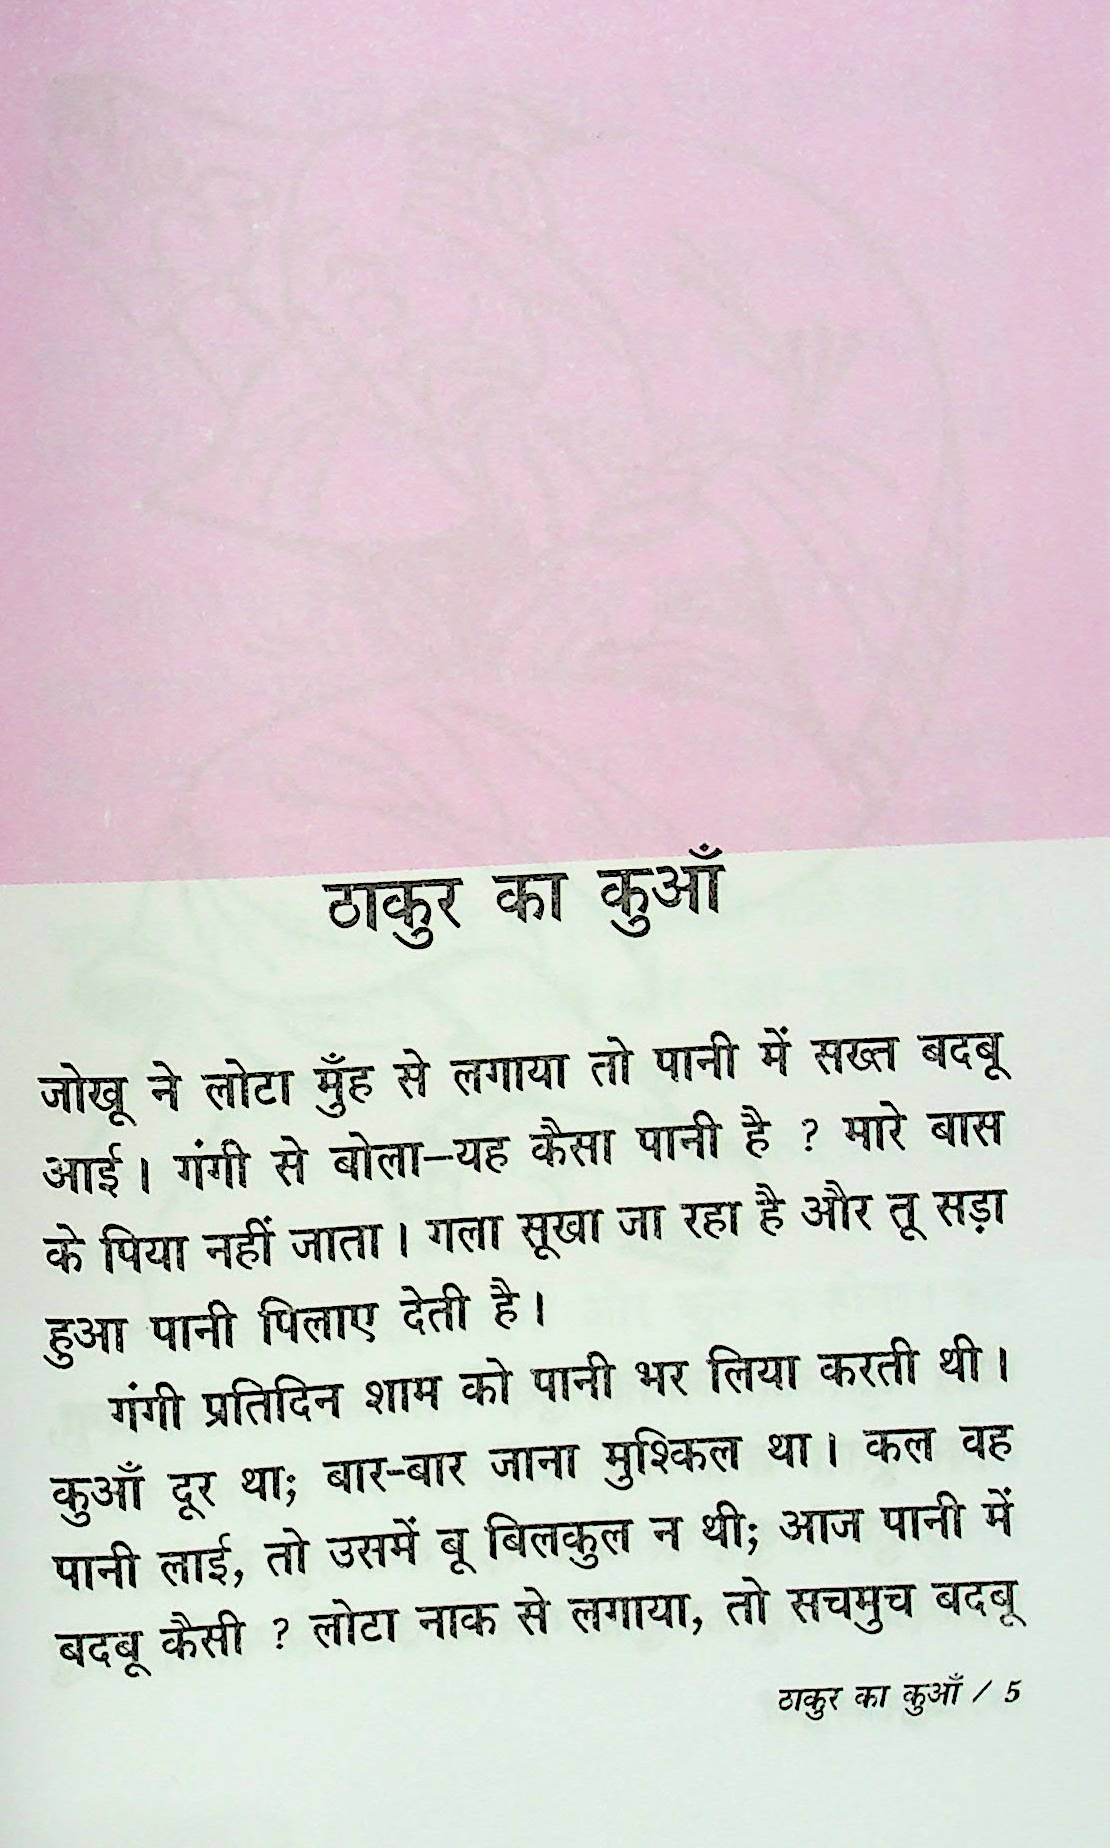 ठाकुर का कुआँ
जोखू ने लोटा मुँह से लगाया तो पानी में सख्त बदबू
आई। गंगी से बोला–यह कैसा पानी है ? मारे बास
के पिया नहीं जाता। गला सूखा जा रहा है और तू सड़ा
हुआ पानी पिलाए देती है।
गंगी प्रतिदिन शाम को पानी भर लिया करती थी।
कुआँ दूर था; बार-बार जाना मुश्किल था। कल वह
पानी लाई, तो उसमें बू बिलकुल न थी; आज पानी में
बदबू कैसी ? लोटा नाक से लगाया, तो सचमुच बदबू
ठाकुर का कुआँ / 5